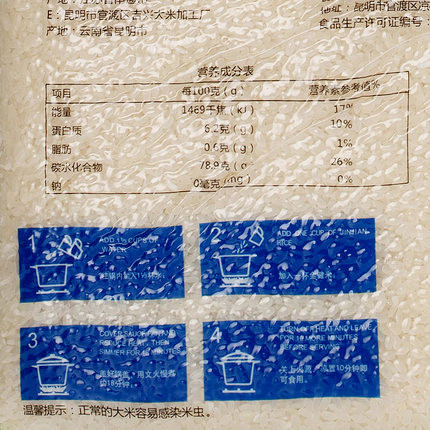 E：昆明市官渡区吉兴大米加工厂
产地：云南省昆明市
地址：昆明市官渡区
食品生产许可证编号：
营养成分表
项目 每100克(g) 营养素参考值%
能量 1469千焦(kJ) 17%
蛋白质 6.2克(g) 10%
脂肪 0.6克(g) 1%
碳水化合物 78.9克(g) 26%
钠 0毫克(mg) 0%
1
ADD 1½ CUPS OF
WATER
往锅内加入1½杯水
2
ADD ONE CUP OF
RICE
加入一杯
3
COVER SAUCEPAN AND
REDUCE HEAT, THEN
SIMMER FOR 18 MINUTES
盖好锅盖，用文火慢煮
约18分钟。
4
TURN OFF HEAT AND LEAVE
FOR 10 MORE MINUTES
BEFORE SERVING
关上火源，泓置10分钟即
可食用。
温馨提示：正常的大米容易感染米虫。